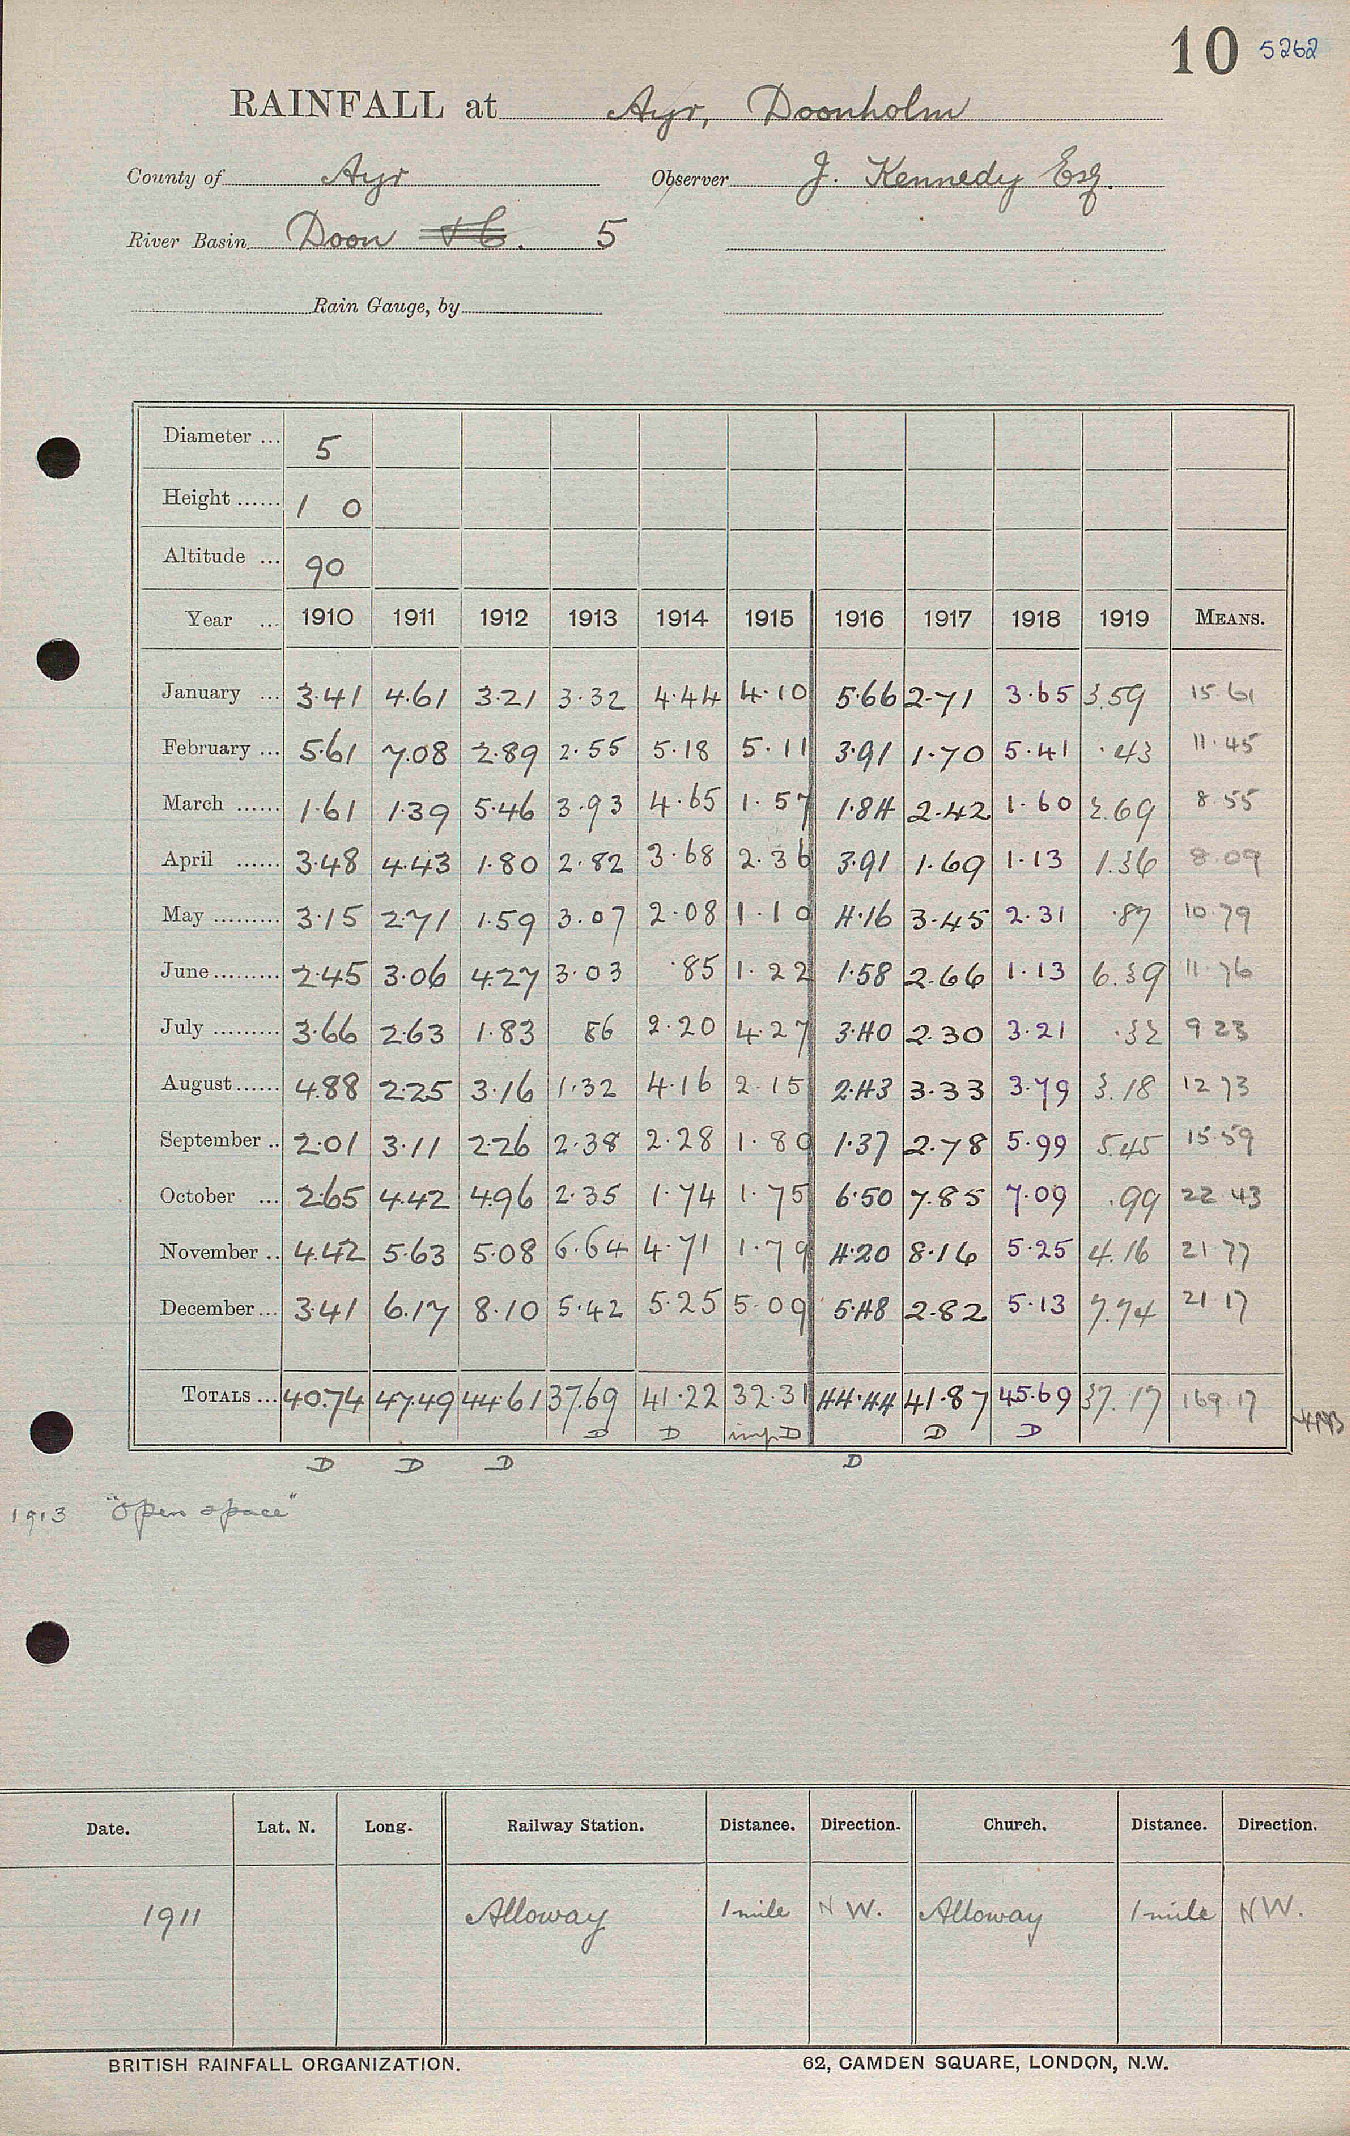 10 5262
RAINFALL at Ayr, Doonholm
County of Ayr Observer J. Kennedy Esq.
River Basin Doon 5
Rain Gauge, by
Diameter ... 5
Height ...... 1 0
Altitude ... 90
Year ... 1910 1911 1912 1913 1914 1915 1916 1917 1918 1919 MEANS.
January ... 3.41 4.61 3.21 3.32 4.44 4.10 5.66 2.71 3.65 3.59 15.61
February ... 5.61 7.08 2.89 2.55 5.18 5.11 3.91 1.70 5.41 .43 11.45
March ...... 1.61 1.39 5.46 3.93 4.65 1.57 1.84 2.42 1.60 2.69 8.55
April ...... 3.48 4.43 1.80 2.82 3.68 2.36 3.91 1.69 1.13 1.36 8.09
May ......... 3.15 2.71 1.59 3.07 2.08 1.10 4.16 3.45 2.31 .87 10.79
June ......... 2.45 3.06 4.27 3.03 .85 1.22 1.58 2.66 1.13 6.39 11.76
July ......... 3.66 2.63 1.83 86 2.20 4.27 3.40 2.30 3.21 .32 9 23
August...... 4.88 2.25 3.16 1.32 4.16 2.15 2.43 3.33 3.79 3.18 12 73
September .. 2.01 3.11 2.26 2.38 2.28 1.80 1.37 2.78 5.99 5.45 15.59
October ... 2.65 4.42 4.96 2.35 1.74 1.75 6.50 7.85 7.09 .99 22 43
November .. 4.42 5.63 5.08 6.64 4.71 1.79 4.20 8.16 5.25 4.16 21 77
December ... 3.41 6.17 8.10 5.42 5.25 5.09 5.48 2.82 5.13 7.74 21 17
TOTALS ... 40.74 47.49 44.61 37.69 41.22 32.31 44.44 41.87 45.69 37.17 169.17
D D imp D D D
D D D D
1913 "Open space"
Date. Lat. N. Long. Railway Station. Distance. Direction. Church. Distance. Direction.
1911 Alloway 1 mile NW. Alloway 1 mile NW.
BRITISH RAINFALL ORGANIZATION. 62, CAMDEN SQUARE, LONDON, N.W.